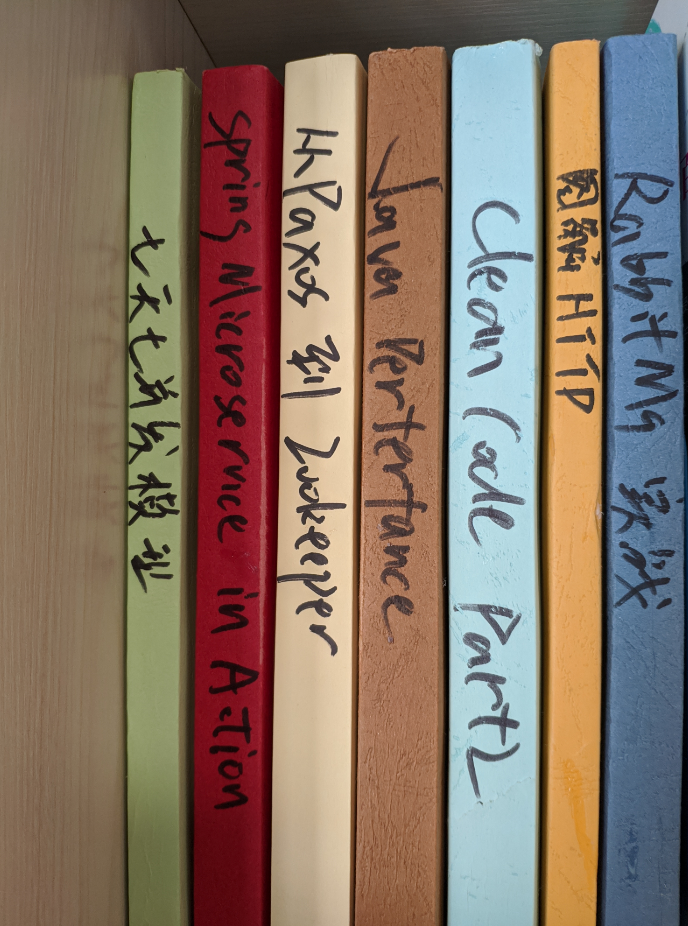 七天七并发模型
Spring Microservice in Action
从Paxos 到 Zookeeper
Java Perterfance
Clean Code Part2
图解 HTTP
RabbitMq 实战